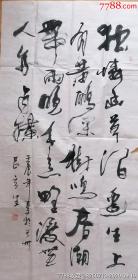 7788.com
独憐幽草涧边生上
有黄鹂深树鸣春潮
带雨晚来急野渡无
人舟自横